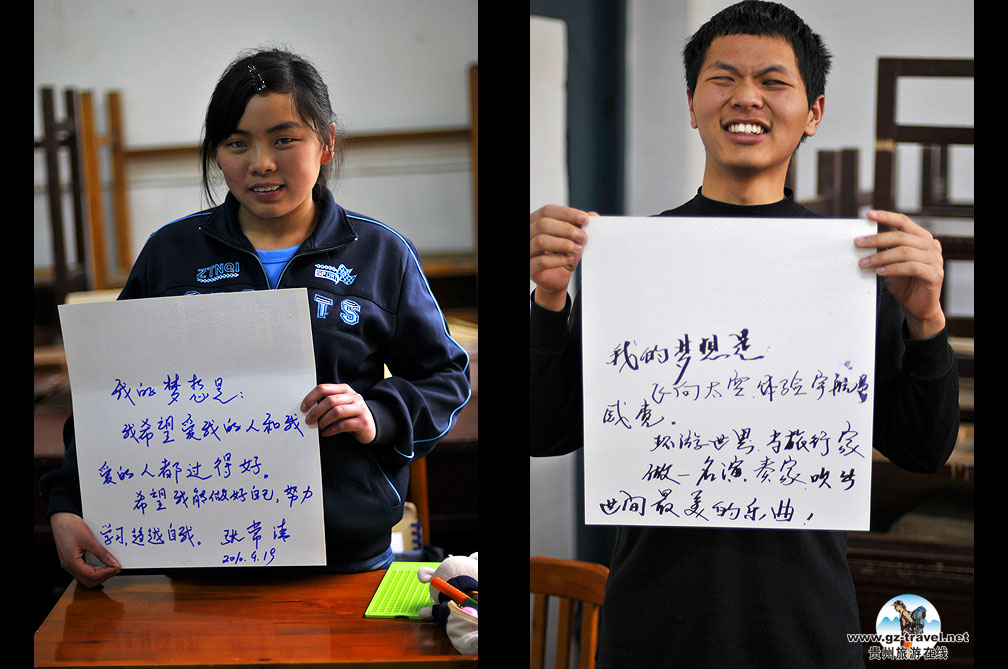 ZTNQI
SPORT
TS
我的梦想是:
我希望爱我的人和我
爱的人都过得好。
希望我能做好自己,努力
学习,超越自我。 张常清
2010.4.19
我的梦想是
飞向太空,体验宇航员
感觉。
环游世界,当旅行家
做一名演奏家,吹出
世间最美的乐曲,
www.gz-travel.net
贵州旅游在线